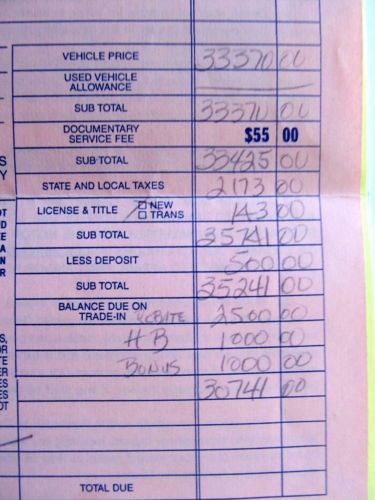 VEHICLE PRICE 33370 00
USED VEHICLE
ALLOWANCE
SUB TOTAL 33370 00
DOCUMENTARY
SERVICE FEE $55 00
SUB TOTAL 33425 00
STATE AND LOCAL TAXES 2173 00
LICENSE & TITLE NEW
TRANS 143 00
SUB TOTAL 35741 00
LESS DEPOSIT 500 00
SUB TOTAL 35241 00
BALANCE DUE ON
TRADE-IN REBATE 2500 00
HB 1000 00
BONUS 1000 00
30741 00
TOTAL DUE